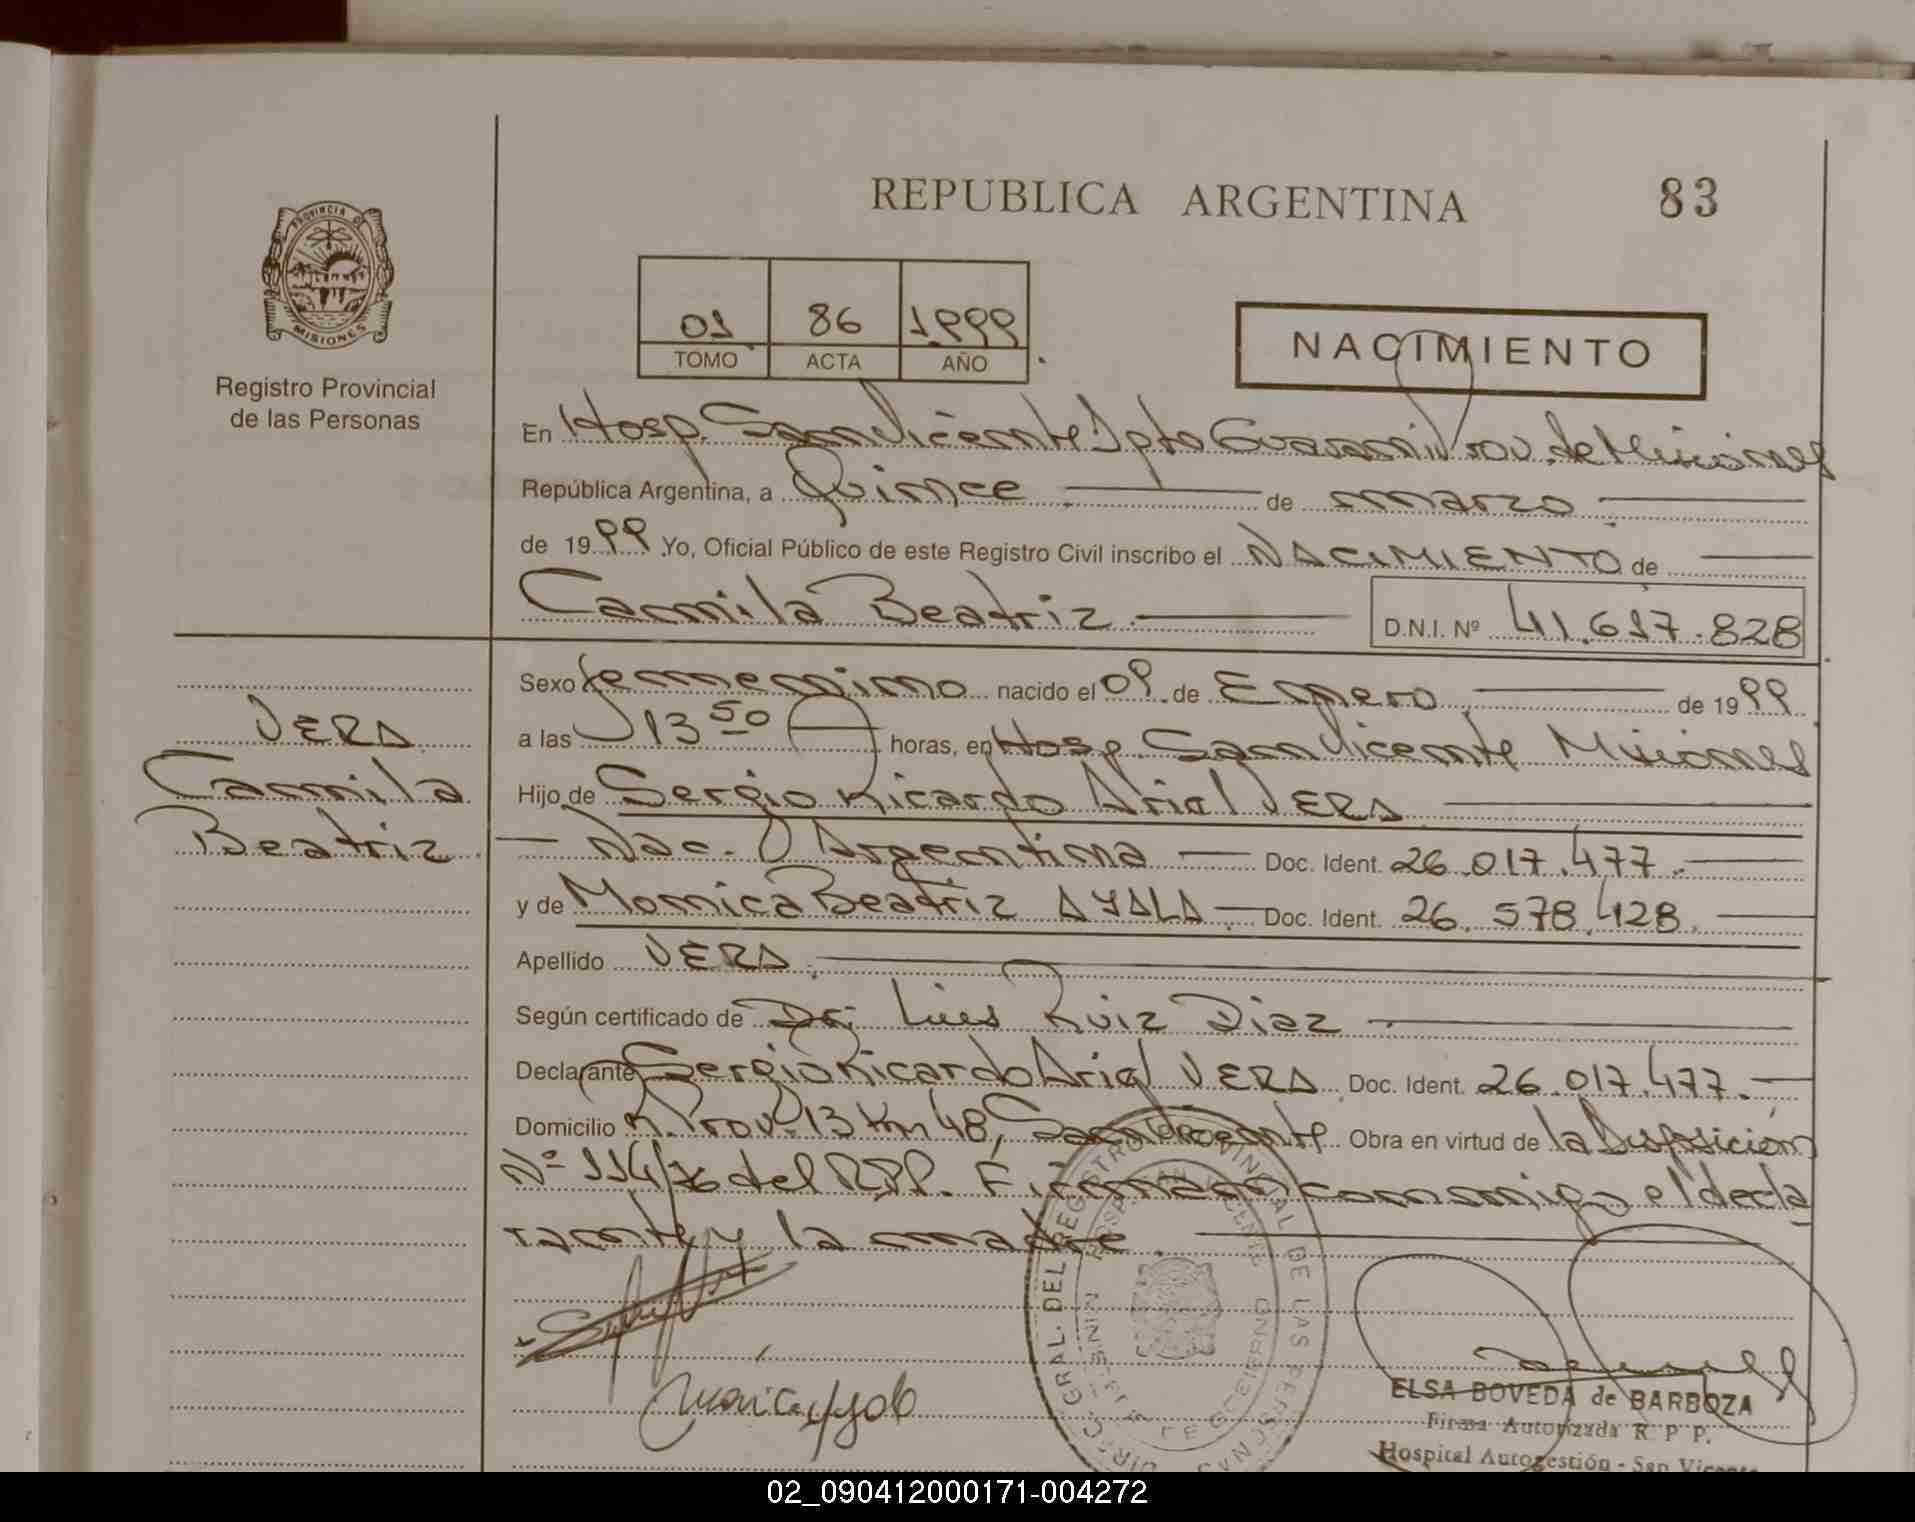 REPUBLICA ARGENTINA
83
PROVINCIA DE
MISIONES
Registro Provincial
de las Personas
01 86 1.999
TOMO ACTA AÑO
NACIMIENTO
En Hosp. San Vicente Dpto Guarani Prov. de Misiones
República Argentina, a Quince de marzo
de 1999 Yo, Oficial Público de este Registro Civil inscribo el NACIMIENTO de
Camila Beatriz.
D.N.I. Nº 41.617.828
VERA
Camila
Beatriz
Sexo femenino nacido el 09 de Enero de 1999
a las 13 50 horas, en Hosp. San Vicente Misiones
Hijo de Sergio Ricardo Ariel VERA
Nac. Argentina Doc. Ident. 26.017.477.
y de Monica Beatriz AYALA Doc. Ident. 26.578.428.
Apellido VERA.
Según certificado de Dr. Luis Ruiz Diaz.
Declarante Sergio Ricardo Ariel VERA Doc. Ident. 26.017.477.
Domicilio R. Prov. 13 Km 48, San Vicente Obra en virtud de la Disposición
Nº 114/76 del R.P.P. Firman conmigo el decla
rante y la madre.
ELSA BOVEDA de BARBOZA
Firma Autorizada R. P. P.
Hospital Autogestión - San Vicente
02_090412000171-004272